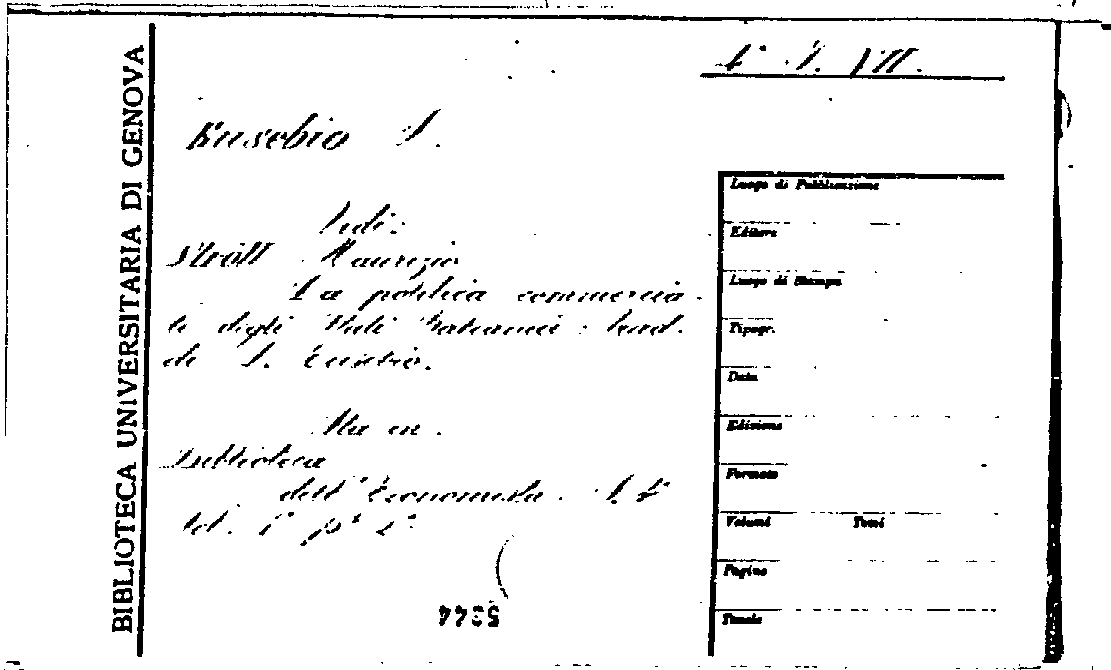 BIBLIOTECA UNIVERSITARIA DI GENOVA
4ª S. VII.
Eusebio L.
Vedi:
Ströll Maurizio
La politica commercia-
le degli Stati Balcanici: trad.
di L. Eusebio.
Sta in.
Biblioteca
dell'Economista. S. 4ª
vol. 1º pª 2ª
5344
Luogo di Pubblicazione
Editore
Luogo di Stampa
Tipogr.
Data
Edizione
Formato
Volumi Tomi
Pagine
Tavole